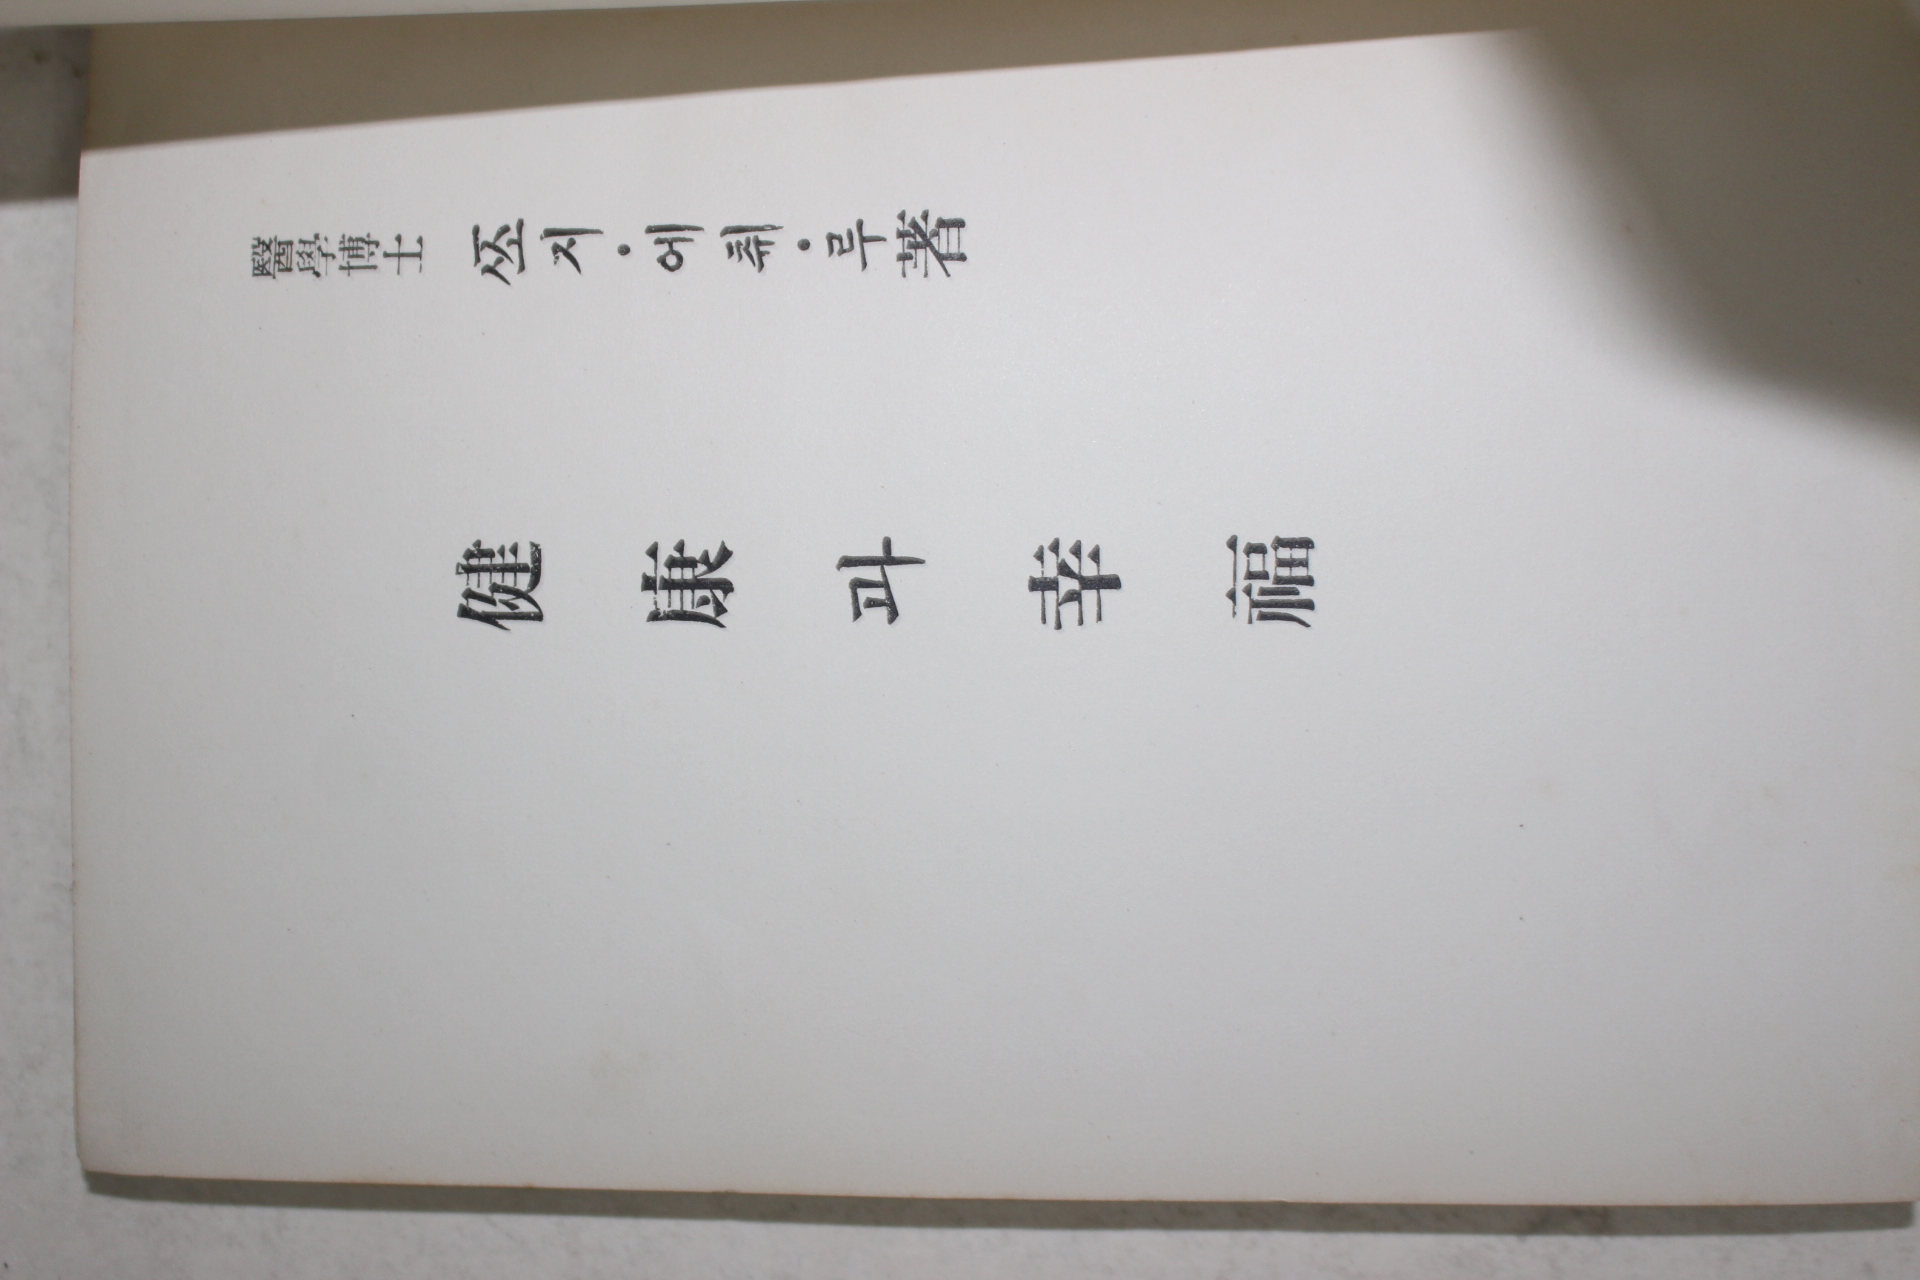 醫學博士 쪼지·에취·루 著
健康과幸福